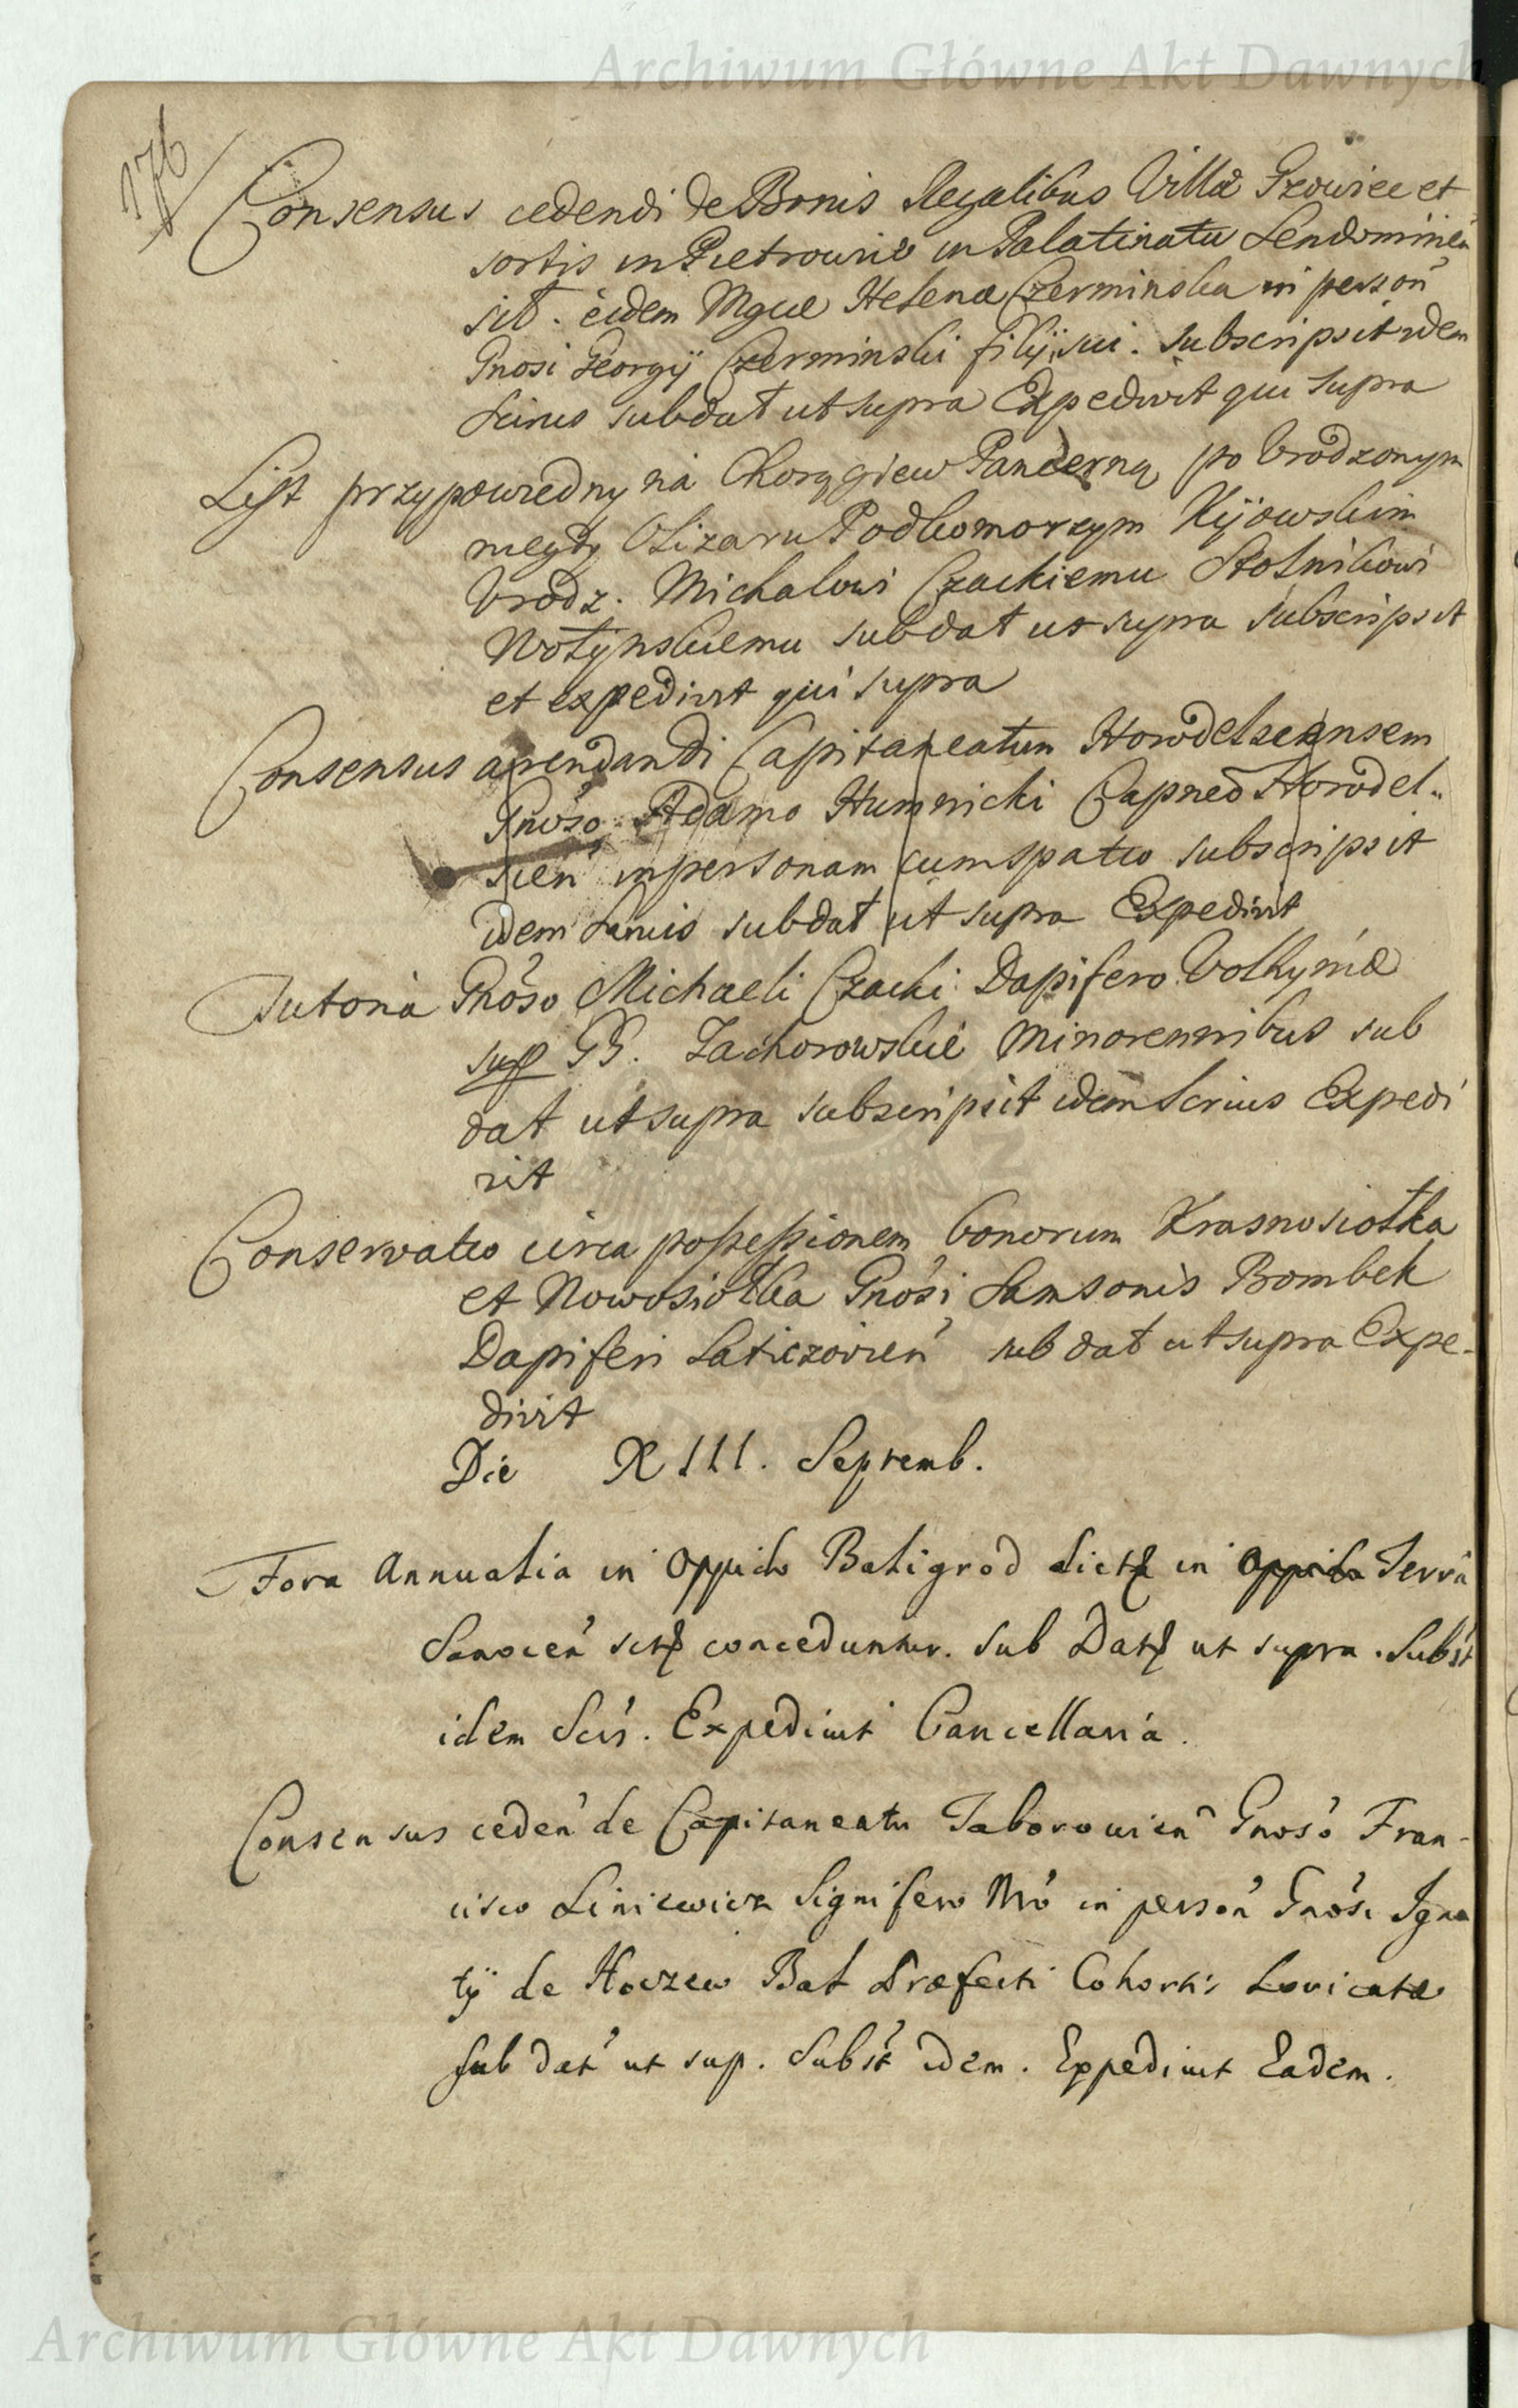 Archiwum Główne Akt Dawnych
176
Consensus cedendi de Bonis Regalibus Villæ Growiec et
sortis in Pietrowice in Palatinatu Sendomirień
sit. eidem Mgcæ Helenæ Czerminska in person
Gnosi Georgij Czerminski filij sui. subscripsit idem
Scrius sub dat ut supra Expedivit qui supra
List przypowiedny na Chorągiew Pancerną po Urodzonym
niegdy Olizaru Podkomorzym Kijowskim
Urodz. Michałowi Czackiemu Stolnikowi
Wołynskiemu sub dat ut supra subscripsit
et expedivit qui supra
Consensus arendandi Capitaneatum Horodelscensem
Gnoso Adamo Humnicki Capneo Horodel-
scień in personam cum spatio subscripsit
idem Scrius sub dat ut supra Expedivit
Tutoria Gnoso Michaeli Czacki Dapifero Volhyniæ
sup GG. Zachorowskie Minorennibus sub
dat ut supra subscripsit idem Scrius Expedi
vit
Conservatio circa possessionem bonorum Krasnosiołka
et Nowosiołka Gnosi Samsonis Bombek
Dapiferi Laticzovień sub dat ut supra Expe-
divit
Die XIII. Septemb.
Fora Annualia in Oppido Baligrod dict in oppido Terra
Sanocień sit conceduntur. Sub Dat ut supra. Subst
idem Scrs. Expedivit Cancellaria.
Consensus ceden de Capitaneatu Taborowien Gnoso Fran-
cisco Liniewicz Signifero Nro in person Gnosi Igna
tij de Hoczew Bal Præfecti Cohortis Loricatæ
sub dat ut sup. Subst idem. Expedivit Eadem.
Archiwum Główne Akt Dawnych